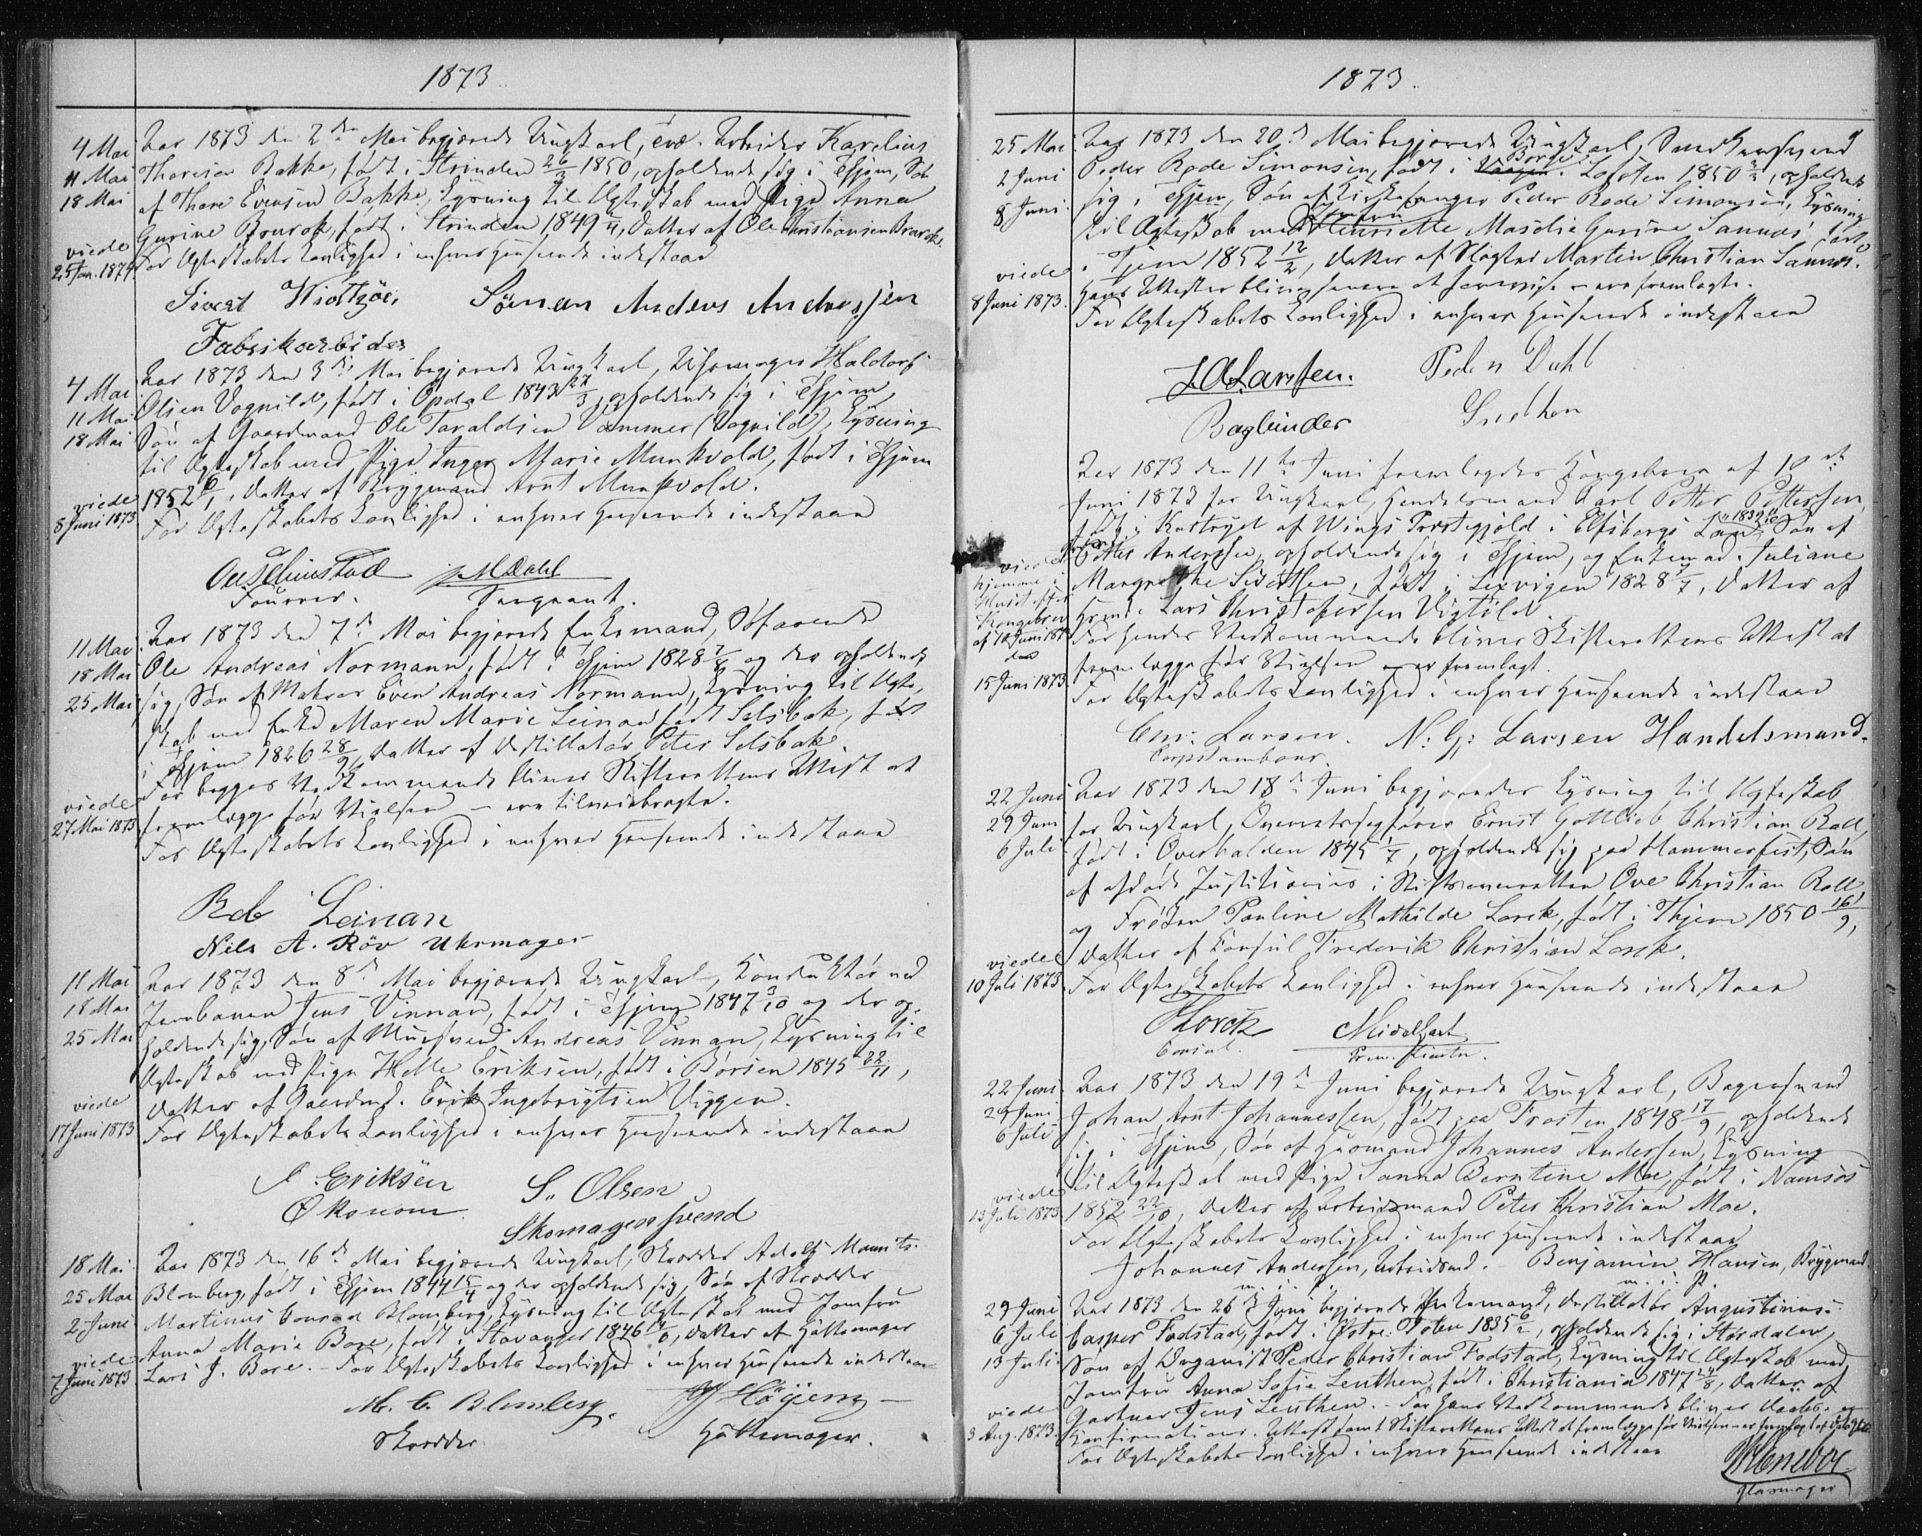 1873
4 Mai
11 Mai
18 Mai
viede
25 Jan. 1874
Aar 1873 den 2den Mai begjærede Ungkarl, Arbeider Karelius
Thoresen Bakke, født i Strinden 26/3 1850, opholdende sig i Thjem, Søn
af Thore Evensen Bakke, Lysning til Ægteskab med Pige Anna
Gurine Brurok, født i Strinden 1849, Datter af Ole Christiansen
For Ægteskabets Lovlighed i enhver Henseende indestaae
Sivert Sömen Anders Andersen
Fabrikarbeider
4 Mai
11 Mai
18 Mai
viede
8 Juni 1873
Aar 1873 den 3die Mai begjærede Ungkarl, Uhrmager Haldorf
Olsen Vognild, født i Opdal 1843 27/3, opholdende sig i Thjem,
Søn af Gaardmand Ole Taraldsen Vammer (Vognild), Lysning
til Ægteskab med Pige Inger Marie Munkvold, født i Thjem
1852, Datter af Bryggmand Arnt Munkvold.
For Ægteskabets Lovlighed i enhver Henseende indestaae
Dahl
Fourrer. Sergeant.
11 Mai
18 Mai
25 Mai
viede
27 Mai 1873
Aar 1873 den 7de Mai begjærede Enkemand, Søfarende
Ole Andreas Normann, født i Thjem 1828 7/8 og der opholdende
sig, Søn af Makrer Even Andreas Normann, Lysning til Ægte-
skab med Enke Maren Marie Leinan født Selsbak, født
i Thjem 1826 28/9, Datter af Destillatør Peter Selsbak.
For begges Vedkommende bliver Skifterettens Attest at
fremlægge før Vielsen – ere tilveiebragte.
For Ægteskabets Lovlighed i enhver Henseende indestaae
Leinan
Nils A. Röv Uhrmager
11 Mai
18 Mai
25 Mai
viede
17 Juni 1873
Aar 1873 den 8de Mai begjærede Ungkarl, Konduktør ved
Jernbanen Jens Vinnan, født i Thjem 1847 3/10 og der op-
holdende sig, Søn af Muursvend Andreas Vinnan, Lysning til
Ægteskab med Pige Helle Eriksen, født i Børsen 1845 22/11,
Datter af Gaardmd. Erik Ingebrigtsen Viggen.
For Ægteskabets Lovlighed i enhver Henseende indestaae
Eriksen S. Olsen
Økonom Skomagersvend
18 Mai
25 Mai
2 Juni
viede
7 Juni 1873
Aar 1873 den 16de Mai begjærede Ungkarl, Skrædder Adolf Maurits
Blomberg, født i Thjem 1844 15/4 og der opholdende sig, Søn af Skrædder
Martinus Conrad Blomberg, Lysning til Ægteskab med Jomfru
Anna Marie Bore, født i Stavanger 1846, Datter af Hattemager
Lars J. Bore. – For Ægteskabets Lovlighed i enhver Henseende indestaae
M. C. Blomberg. Höyem
Skrædder Hattemager.
1873.
25 Mai
2 Juni
8 Juni
viede
8 Juni 1873.
Aar 1873 den 20de Mai begjærede Ungkarl, Snedkersvend
Peder Rode Simonsen, født i Borge i Lofoten 1850, opholdende
sig i Thjem, Søn af Kirkesanger Peder Rode Simonsen, Lysning
til Ægteskab med Jomfru Henriette Gurine Sannæs, født
i Thjem 1852 12/2, Datter af Slagter Martin Christian Sannæs.
Hans Attester bliver senere at forevise – ere fremlagte.
For Ægteskabets Lovlighed i enhver Henseende indestaae
Larssen. Peder Dahl
Bogbinder Snedker
viede
hjemme i
Huset efter
Kongebrev
af 10 Juni 187
den
15 Juni 1873
Aar 1873 den 11te Juni fremlagdes Kongebrev af 10de
Juni 1873 for Ungkarl, Handelsmand Carl Petter Pettersen,
født i af Wings Præstegjeld i Elfsborgs Län 1839, Søn af
Petter Andersen, opholdende sig i Thjem, og Enkemad. Juliane
Margrethe Sivertsen, født i Lexvigen 1828, Datter af
Lars Christofersen Vigtild.
For hendes Vedkommende bliver Skifterettens Attest at
fremlægge før Vielsen – er fremlagt.
For Ægteskabets Lovlighed i enhver Henseende indestaae
Chr. Larsen. N. G. Larsen Handelsmand.
Corpstambour.
22 Juni
29 Juni
6 Juli
viede
10 Juli 1873
Aar 1873 den 18de Juni begjæredes Lysning til Ægteskab
for Ungkarl, Overretssagfører Ernst Gottlieb Christian Roll,
født i Overhalden 1845 1/7, opholdende sig paa Hammerfest, Søn
af afdøde Justitiarius i Stiftsoverretten Ove Christian Roll,
og Frøken Pauline Mathilde Lorck, født i Thjem 1850 16/9,
Datter af Consul Frederik Christian Lorck.
For Ægteskabets Lovlighed i enhver Henseende indestaae
Lorck Midelfart
Consul. Prem. Lieutn.
22 Juni
29 Juni
6 Juli
viede
13 Juli 1873
Aar 1873 den 19de Juni begjærede Ungkarl, Bagersvend
Johan Arnt Johannessen, født paa Frosten 1848 17/9, opholdende
sig i Thjem, Søn af Husmand Johannes Andersen, Lysning
til Ægteskab med Pige Sanna Berntine Moe, født i Namsos
1852 22/10, Datter af Arbeidsmand Peter Christian Moe.
For Ægteskabets Lovlighed i enhver Henseende indestaae
Johannes Andersen, Arbeidsmd. – Benjamin Hansen, Bryggmand
m. i. p. m. i. p.
29 Juni
6 Juli
13 Juli
viede
3 Aug. 1873.
Aar 1873 den 26de Juni begjærede Enkemand, Destillatør Augustinus
Casper Fodstad, født i Østre Toten 1835, opholdende sig i Størdalen,
Søn af Organist Peder Christian Fodstad, Lysning til Ægteskab med
Jomfru Anna Sofie Leuthen, født i Christiania 1847 24/8, Datter af
Gartner Jens Leuthen. – For hans Vedkommende bliver Daabs- og
Konfirmations Attest samt Skifterettens Attest at fremlægge før Vielsen
For Ægteskabets Lovlighed i enhver Henseende indestaae
Glasmager